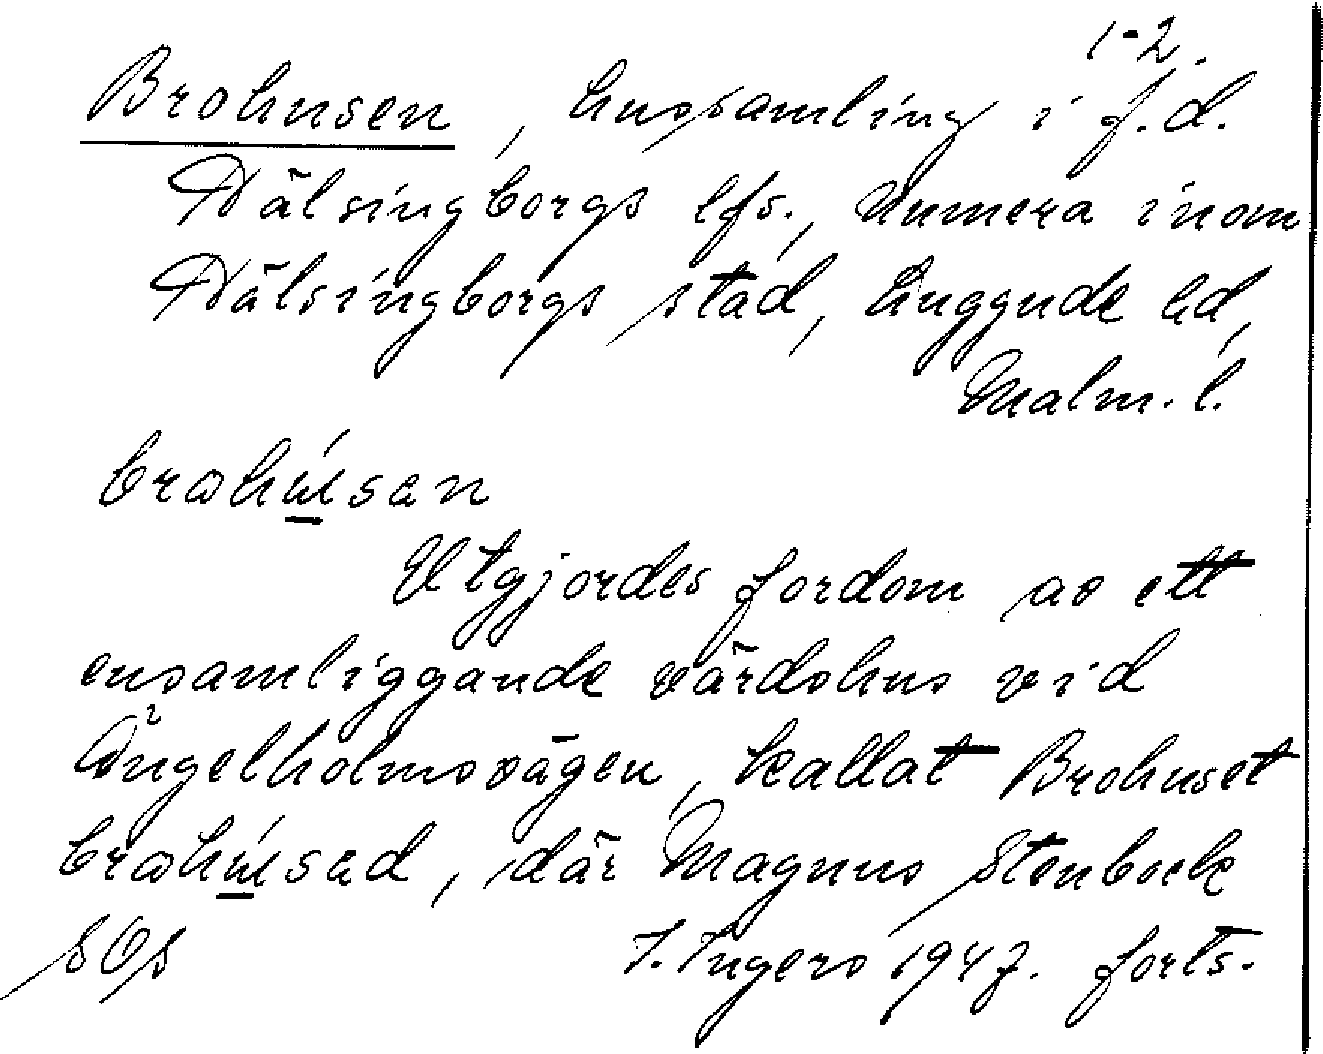 1-2.
Brohusen, hussamling i f.d.
Hälsingborgs lfs., numera inom
Hälsingborgs stad, Luggude hd,
Malm. l.
brωhúsen
Utgjordes fordom av ett
ensamliggande värdshus vid
Ängelholmsvägen, kallat Brohuset
brωhúsed, där Magnus Stenbock
I. Ingers 1947. forts.